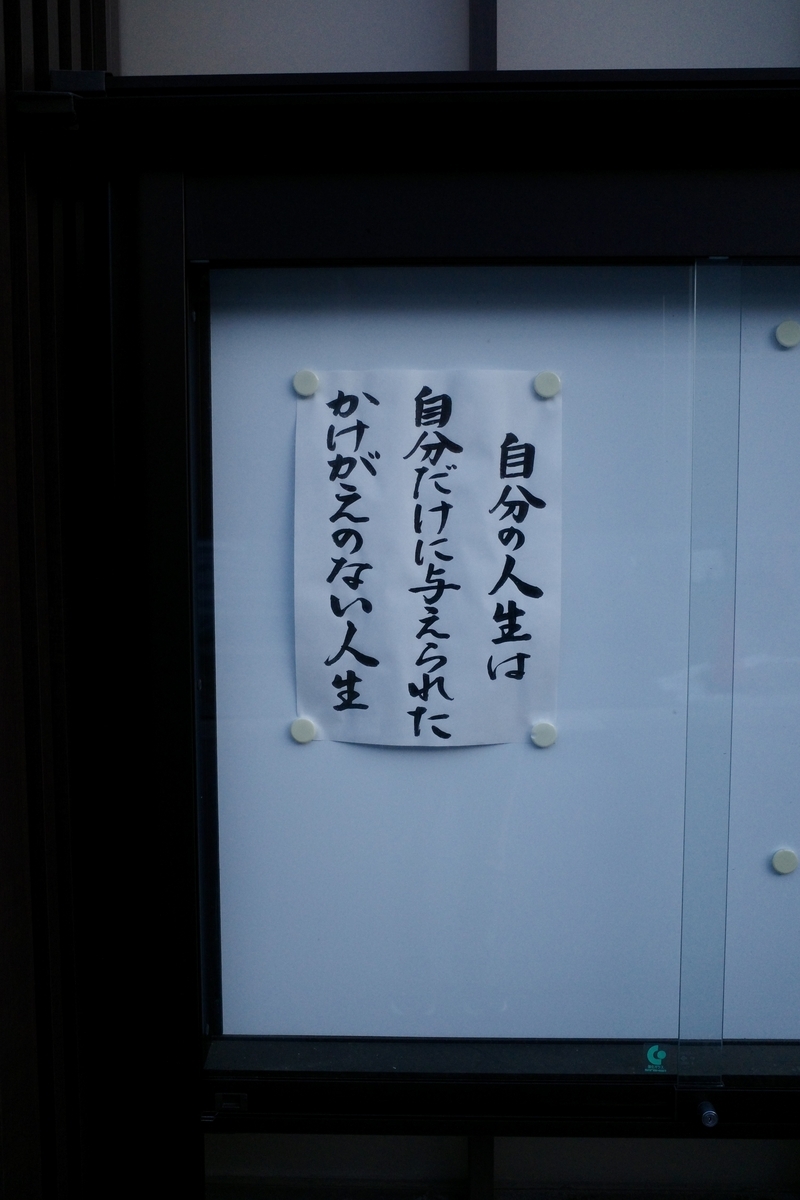 自分の人生は
自分だけに与えられた
かけがえのない人生